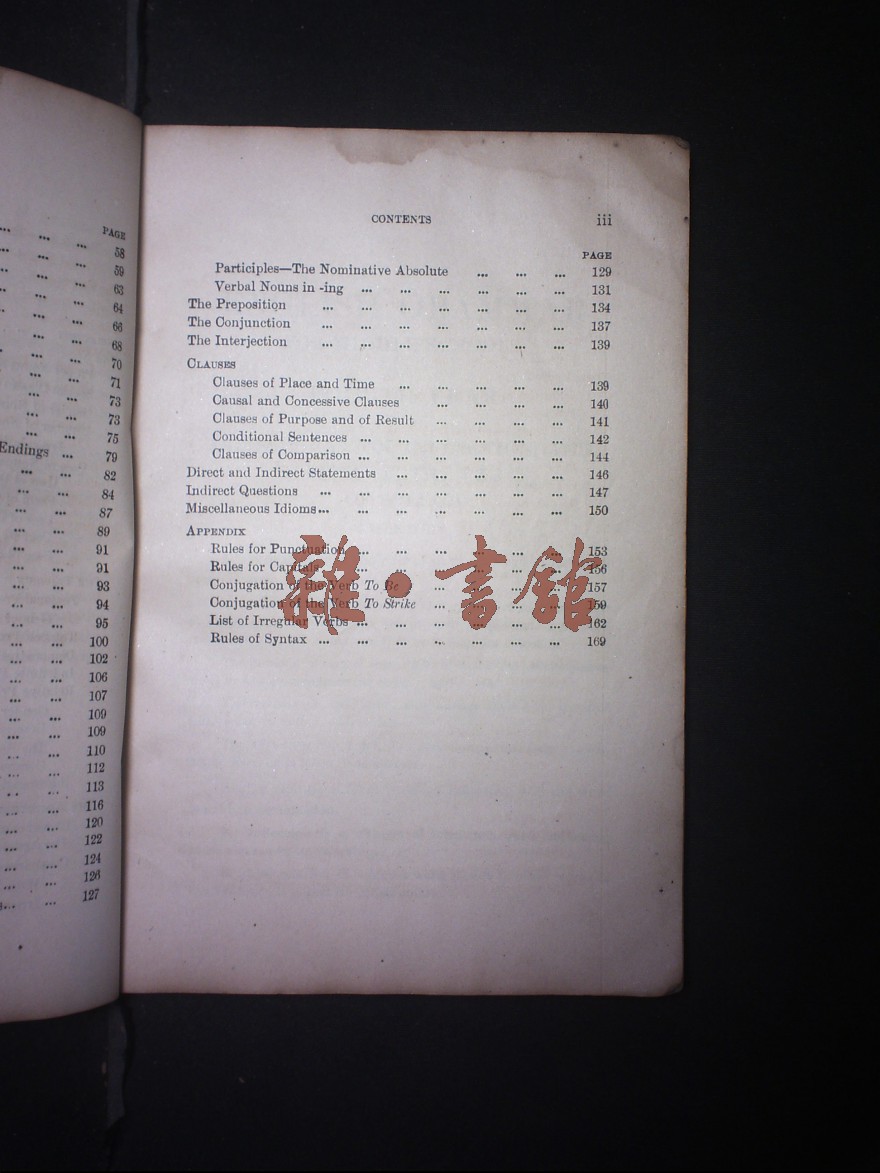 PAGE
... ... ... 58
... ... ... 59
... ... ... 63
... ... ... 64
... ... ... 66
... ... ... 68
... ... ... 70
... ... ... 71
... ... ... 73
... ... 73
... ... 75
Endings ... 79
... ... 82
... ... 84
... ... 87
... ... 89
... ... 91
... ... 91
... ... 93
... ... 94
... ... 95
... ... 100
... ... 102
... ... 106
... ... 107
... ... 109
... ... 109
... ... 110
... ... 112
... ... 113
... ... 116
... ... 120
... ... 122
... ... 124
... ... 126
... ... 127
CONTENTS iii
PAGE
Participles—The Nominative Absolute ... ... ... 129
Verbal Nouns in -ing ... ... ... ... ... ... 131
The Preposition ... ... ... ... ... ... ... 134
The Conjunction ... ... ... ... ... ... ... 137
The Interjection ... ... ... ... ... ... ... 139
CLAUSES
Clauses of Place and Time ... ... ... ... ... 139
Causal and Concessive Clauses ... ... ... ... 140
Clauses of Purpose and of Result ... ... ... ... 141
Conditional Sentences ... ... ... ... ... ... 142
Clauses of Comparison ... ... ... ... ... ... 144
Direct and Indirect Statements ... ... ... ... ... 146
Indirect Questions ... ... ... ... ... ... ... 147
Miscellaneous Idioms ... ... ... ... ... ... ... 150
APPENDIX
Rules for Punctuation ... ... ... ... ... ... 153
Rules for Capitals ... ... ... ... ... ... 156
Conjugation of the Verb To Be ... ... ... ... 157
Conjugation of the Verb To Strike ... ... ... ... 159
List of Irregular Verbs ... ... ... ... ... ... 162
Rules of Syntax ... ... ... ... ... ... ... 169
雜·書館